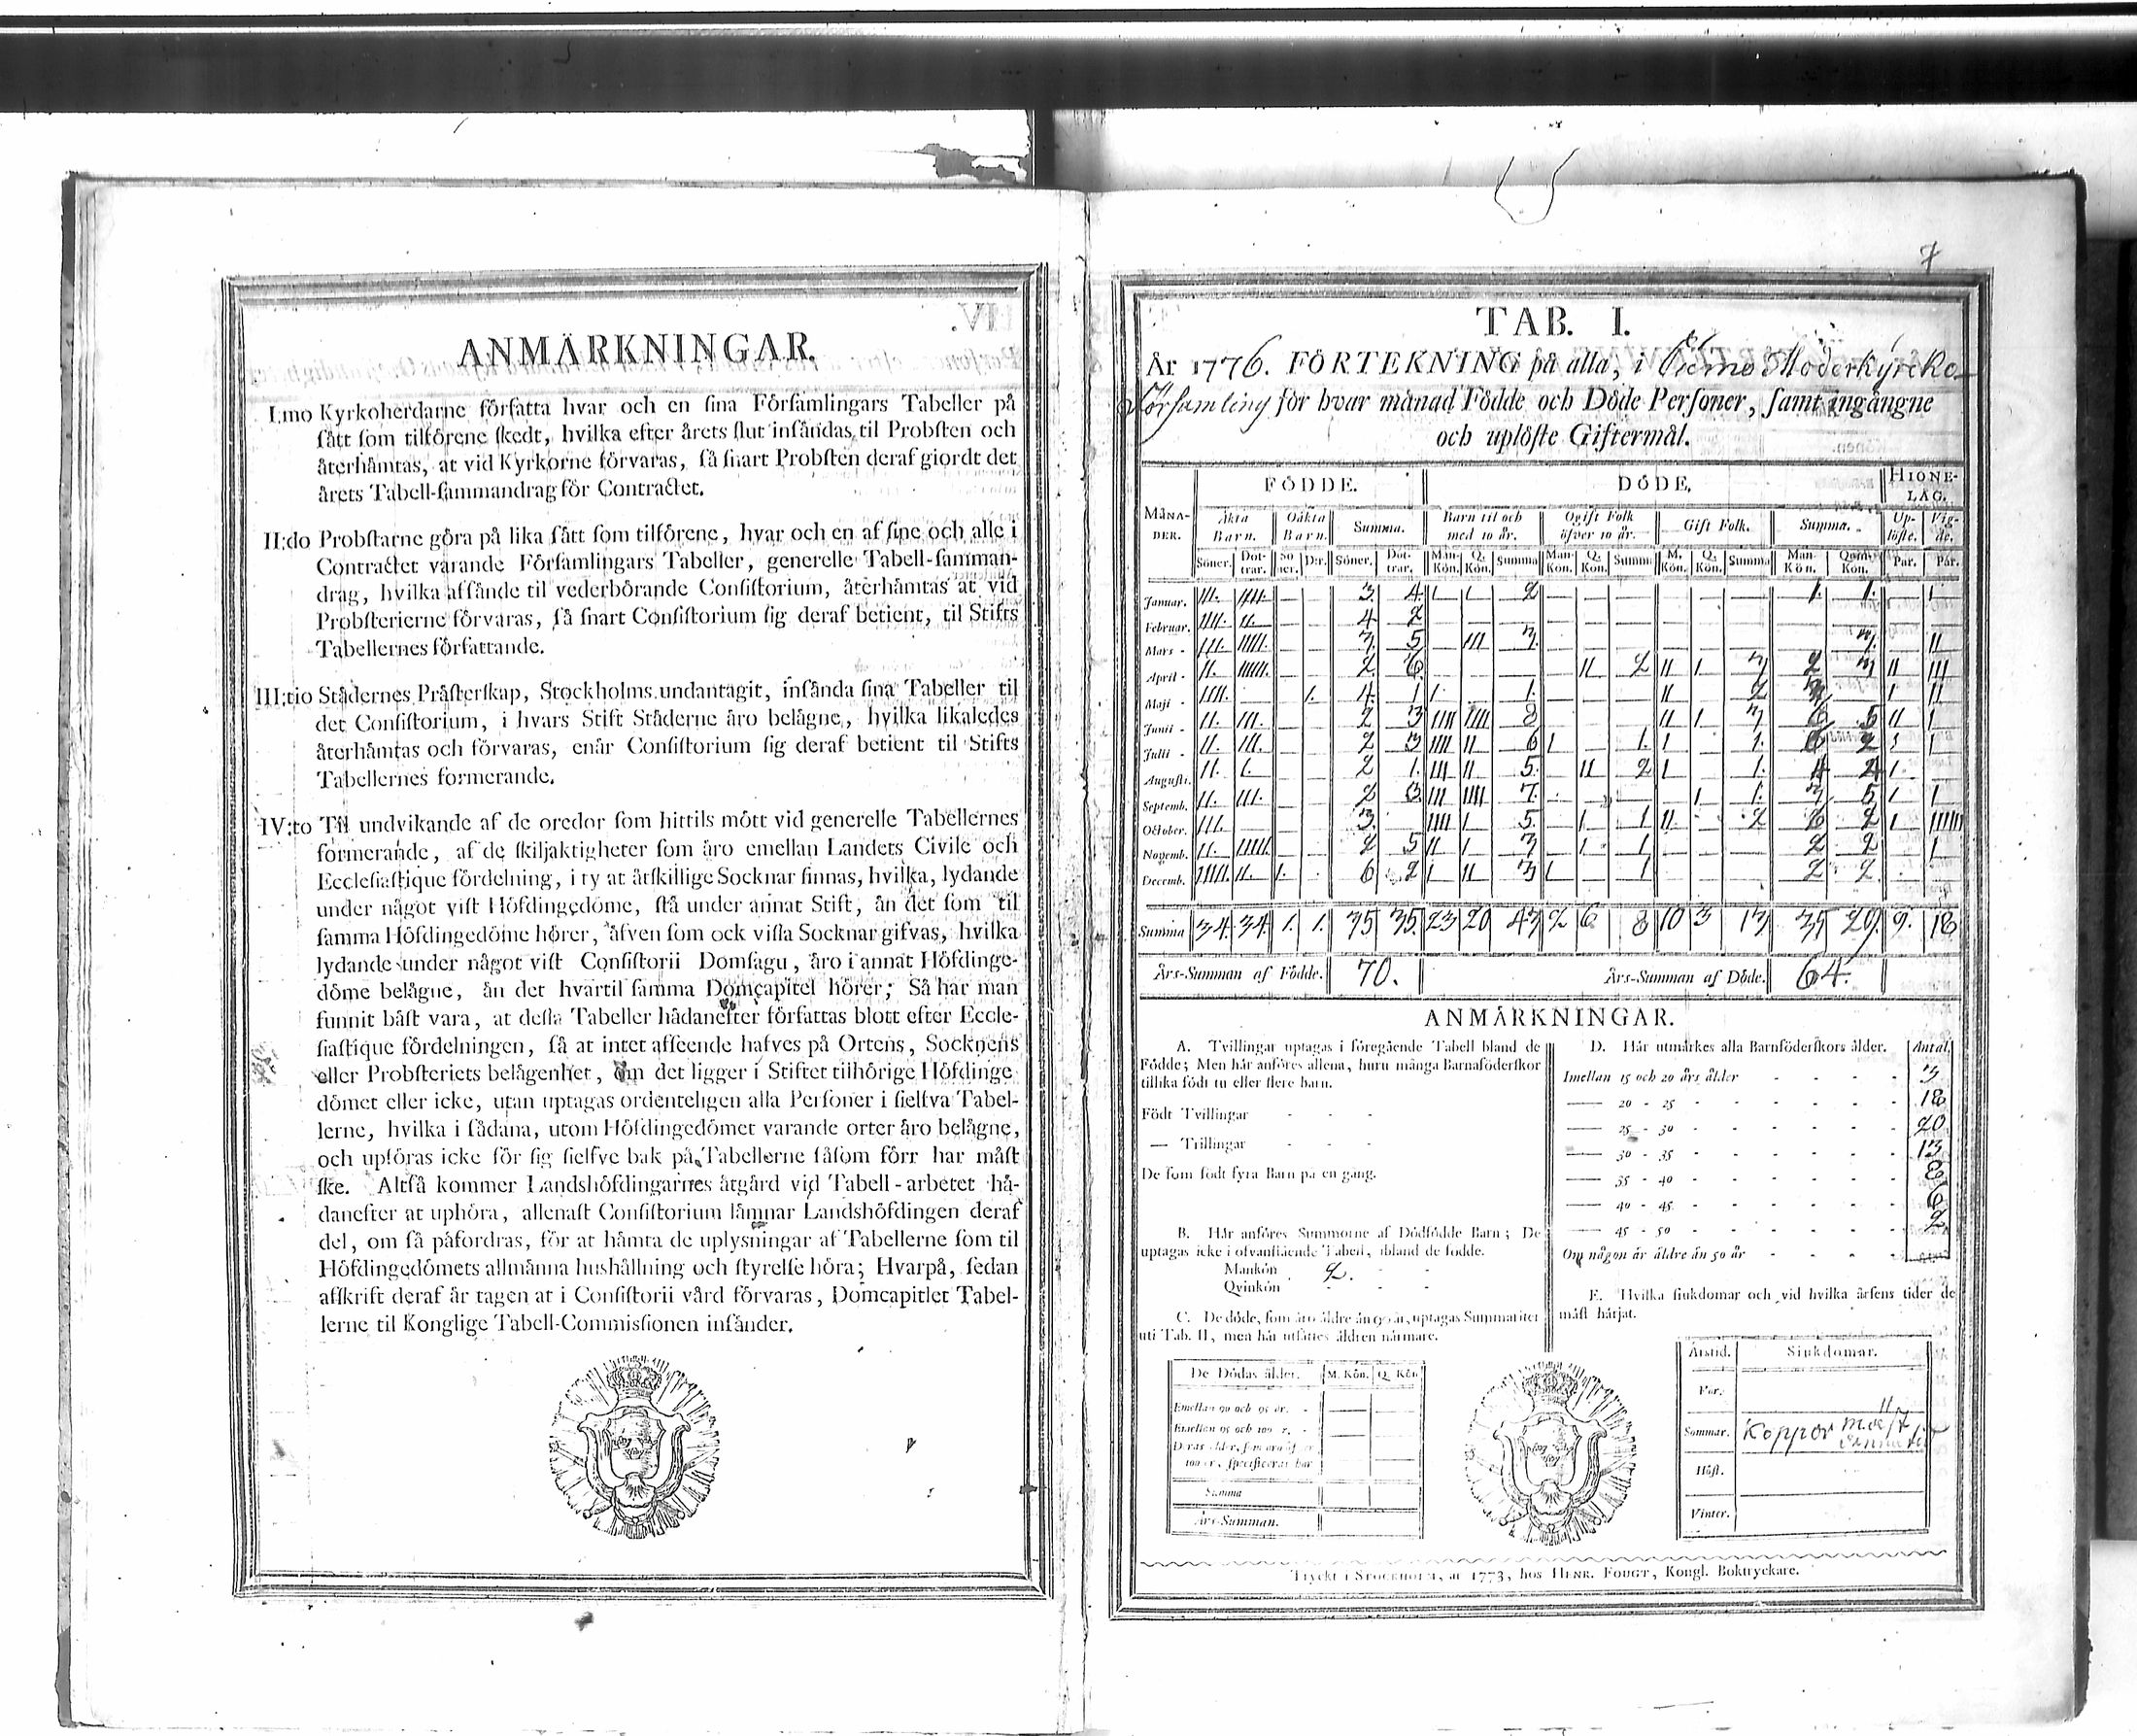 ANMÄRKNINGAR.
I.mo Kyrkoherdarne författa hvar och en sina Församlingars Tabeller på
sätt som tilförene skedt, hvilka efter årets slut insändas til Probsten och
återhämtas, at vid Kyrkorne förvaras, så snart Probsten deraf giordt det
årets Tabell-sammandrag för Contractet.
II:do Probstarne göra på lika sätt som tilförene, hvar och en af sine och alle i
Contractet varande Församlingars Tabeller, generelle Tabell-samman-
drag, hvilka afsände til vederbörande Consistorium, återhämtas at vid
Probsterierne förvaras, så snart Consistorium sig deraf betient, til Stifts
Tabellernes författande.
III:tio Städernes Prästerskap, Stockholms undantagit, insända sina Tabeller til
det Consistorium, i hvars Stift Städerne äro belägne, hvilka likaledes
återhämtas och förvaras, enär Consistorium sig deraf betient til Stifts
Tabellernes formerande.
IV:to Til undvikande af de oredor som hittils mött vid generelle Tabellernes
formerande, af de skiljaktigheter som äro emellan Landets Civile och
Ecclesiastique fördelning, i ty at åtskillige Socknar finnas, hvilka, lydande
under något vist Höfdingedöme, stå under annat Stift, än det som til
samma Höfdingedöme hörer, äfven som ock vissa Socknar gifvas, hvilka
lydande under något vist Consistorii Domsagu, äro i annat Höfdinge-
döme belägne, än det hvartil samma Domcapitel hörer; Så har man
funnit bäst vara, at dessa Tabeller hädanefter författas blott efter Eccle-
siastique fördelningen, så at intet afseende hafves på Ortens, Socknens
eller Probsteriets belägenhet, om det ligger i Stiftet tilhörige Höfdinge
dömet eller icke, utan uptagas ordenteligen alla Personer i sielfva Tabel-
lerne, hvilka i sådana, utom Höfdingedömet varande orter äro belägne,
och upföras icke för sig sielfve bak på Tabellerne såsom förr har måst
ske. Altså kommer Landshöfdingarnes åtgärd vid Tabell-arbetet hä-
danefter at uphöra, allenast Consistorium lämnar Landshöfdingen deraf
del, om så påfordras, för at hämta de uplysningar af Tabellerne som til
Höfdingedömets allmänna hushållning och styrelse höra; Hvarpå, sedan
afskrift deraf är tagen at i Consistorii vård förvaras, Domcapitlet Tabel-
lerne til Konglige Tabell-Commissionen insänder.
7
TAB. I.
År 1776. FÖRTEKNING på alla, i Moderkyrko-
Församling för hvar månad Födde och Döde Personer, samt ingångne
och uplöste Giftermål.
MÅNA-DER. FÖDDE. DÖDE. HIONE-LAG.
Äkta Barn. Oäkta Barn. Summa. Barn til och med 10 år. Ogift Folk öfver 10 år. Gift Folk. Summa. Up-löste. Vig-de.
Söner. Dot-trar. So ner. D:r. Söner. Dot-trar. Man-Kön. Q. Kön. Summa Man-Kön. Q. Kön. Summa M. Kön. Q. Kön. Summa Man-Kön. Qvin-Kön. Par. Par.
Januar. III. IIII. — — 3. 4. I I 2 — — — — — — 1. 1. — I
Februar. IIII. II. — — 4 2
Mars - III. IIIII. — — 3. 5. III 3. 3. — II
April - II. IIIIII. — — 2 6. II 2 II I 3 2 3 II III
Maji - IIII. I. 4. 1 I 1. II 2 3 I II
Junii - II. III. 2 3 IIII IIII 8 II I 3 6 5 II I
Julii - II. III. 2 3 IIII II 6 I 1. I 1. 6 2 I I
Augusti. II. I. 2 1. III II 5. II 2 I 1. 4 4 I
Septemb. II. III. 2 3 III IIII 7. I 1. 3 5 I I
October. III. 3. IIII I 5. I 1 II 2 6 2 I IIIIII
Novemb. II. IIIII. 2 5 II I 3 I 1 2 2 I
Decemb. IIIII. II. I. 6 2 I II 3 I 1 2 2
Summa 34. 34. 1. 1. 35 35. 23 20 43 2 6 8 10 3 13 35 29. 9. 18
Års-Summan af Födde. 70. Års-Summan af Döde. 64.
ANMÄRKNINGAR.
A. Tvillingar uptagas i föregående Tabell bland de
Födde; Men här anföres allena, huru många Barnaföderskor
tillika födt tu eller flere barn.
Födt Tvillingar - - -
— Trillingar - - -
De som födt fyra Barn på en gång.
B. Här anföres Summorne af Dödfödde Barn; De
uptagas icke i ofvanstående Tabell, ibland de födde.
Mankön 2. - -
Qvinkön - - -
C. De döde, som äro äldre än 90 år, uptagas Summariter
uti Tab. II, men här utsättes åldren närmare.
De Dödas ålder. M. Kön. Q. Kön
Emellan 90 och 95 år. -
Emellan 95 och 100 år. -
Deras ålder, som äro öfver
100 år, specificeras här
Summa
Års-Summan.
D. Här utmärkes alla Barnföderskors ålder. Antal.
Imellan 15 och 20 års ålder - - - - 3
— 20 - 25 - - - - - 18
— 25 - 30 - - - - - 20
— 30 - 35 - - - - - 13
— 35 - 40 - - - - - 8
— 40 - 45 - - - - - 6
— 45 - 50 - - - - - 2
Om någon är äldre än 50 år - - - -
E. Hvilka siukdomar och vid hvilka årsens tider de
mäst härjat.
Årstid. Siukdomar.
Vår.
Sommar. Koppor
Höst.
Vinter.
Tryckt i STOCKHOLM, år 1773, hos HENR. FOUGT, Kongl. Boktryckare.